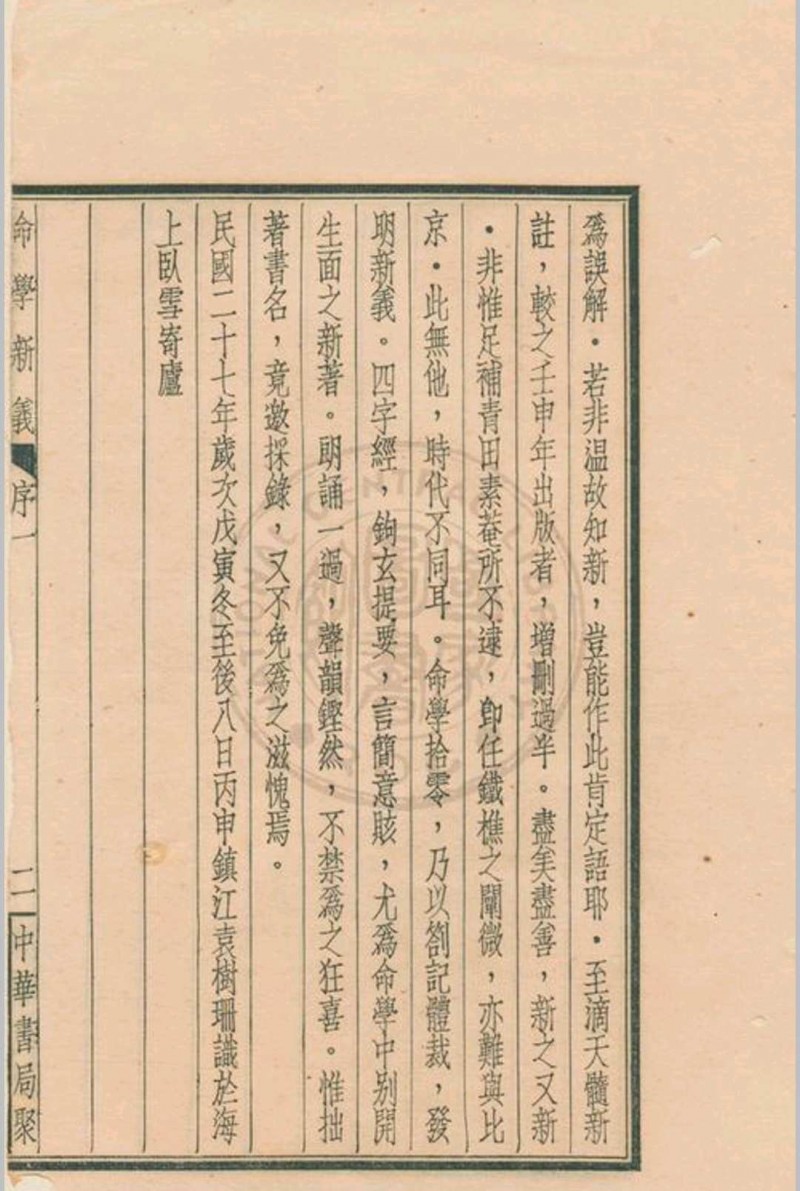 爲誤解．若非温故知新，豈能作此肯定語耶．至滴天髓新
註，較之壬申年出版者，增刪過半。盡美盡善，新之又新
．非惟足補青田素菴所不逮，卽任鐵樵之闡微，亦難與比
京．此無他，時代不同耳。命學拾零，乃以劄記體裁，發
明新義。四字經，鉤玄提要，言簡意賅，尤爲命學中別開
生面之新著。朗誦一過，聲韻鏗然，不禁爲之狂喜。惟拙
著書名，竟邀採錄，又不免爲之滋愧焉。
民國二十七年歲次戊寅冬至後八日丙申鎮江袁樹珊識於海
上臥雪寄廬
命學新義 序一 二 中華書局聚